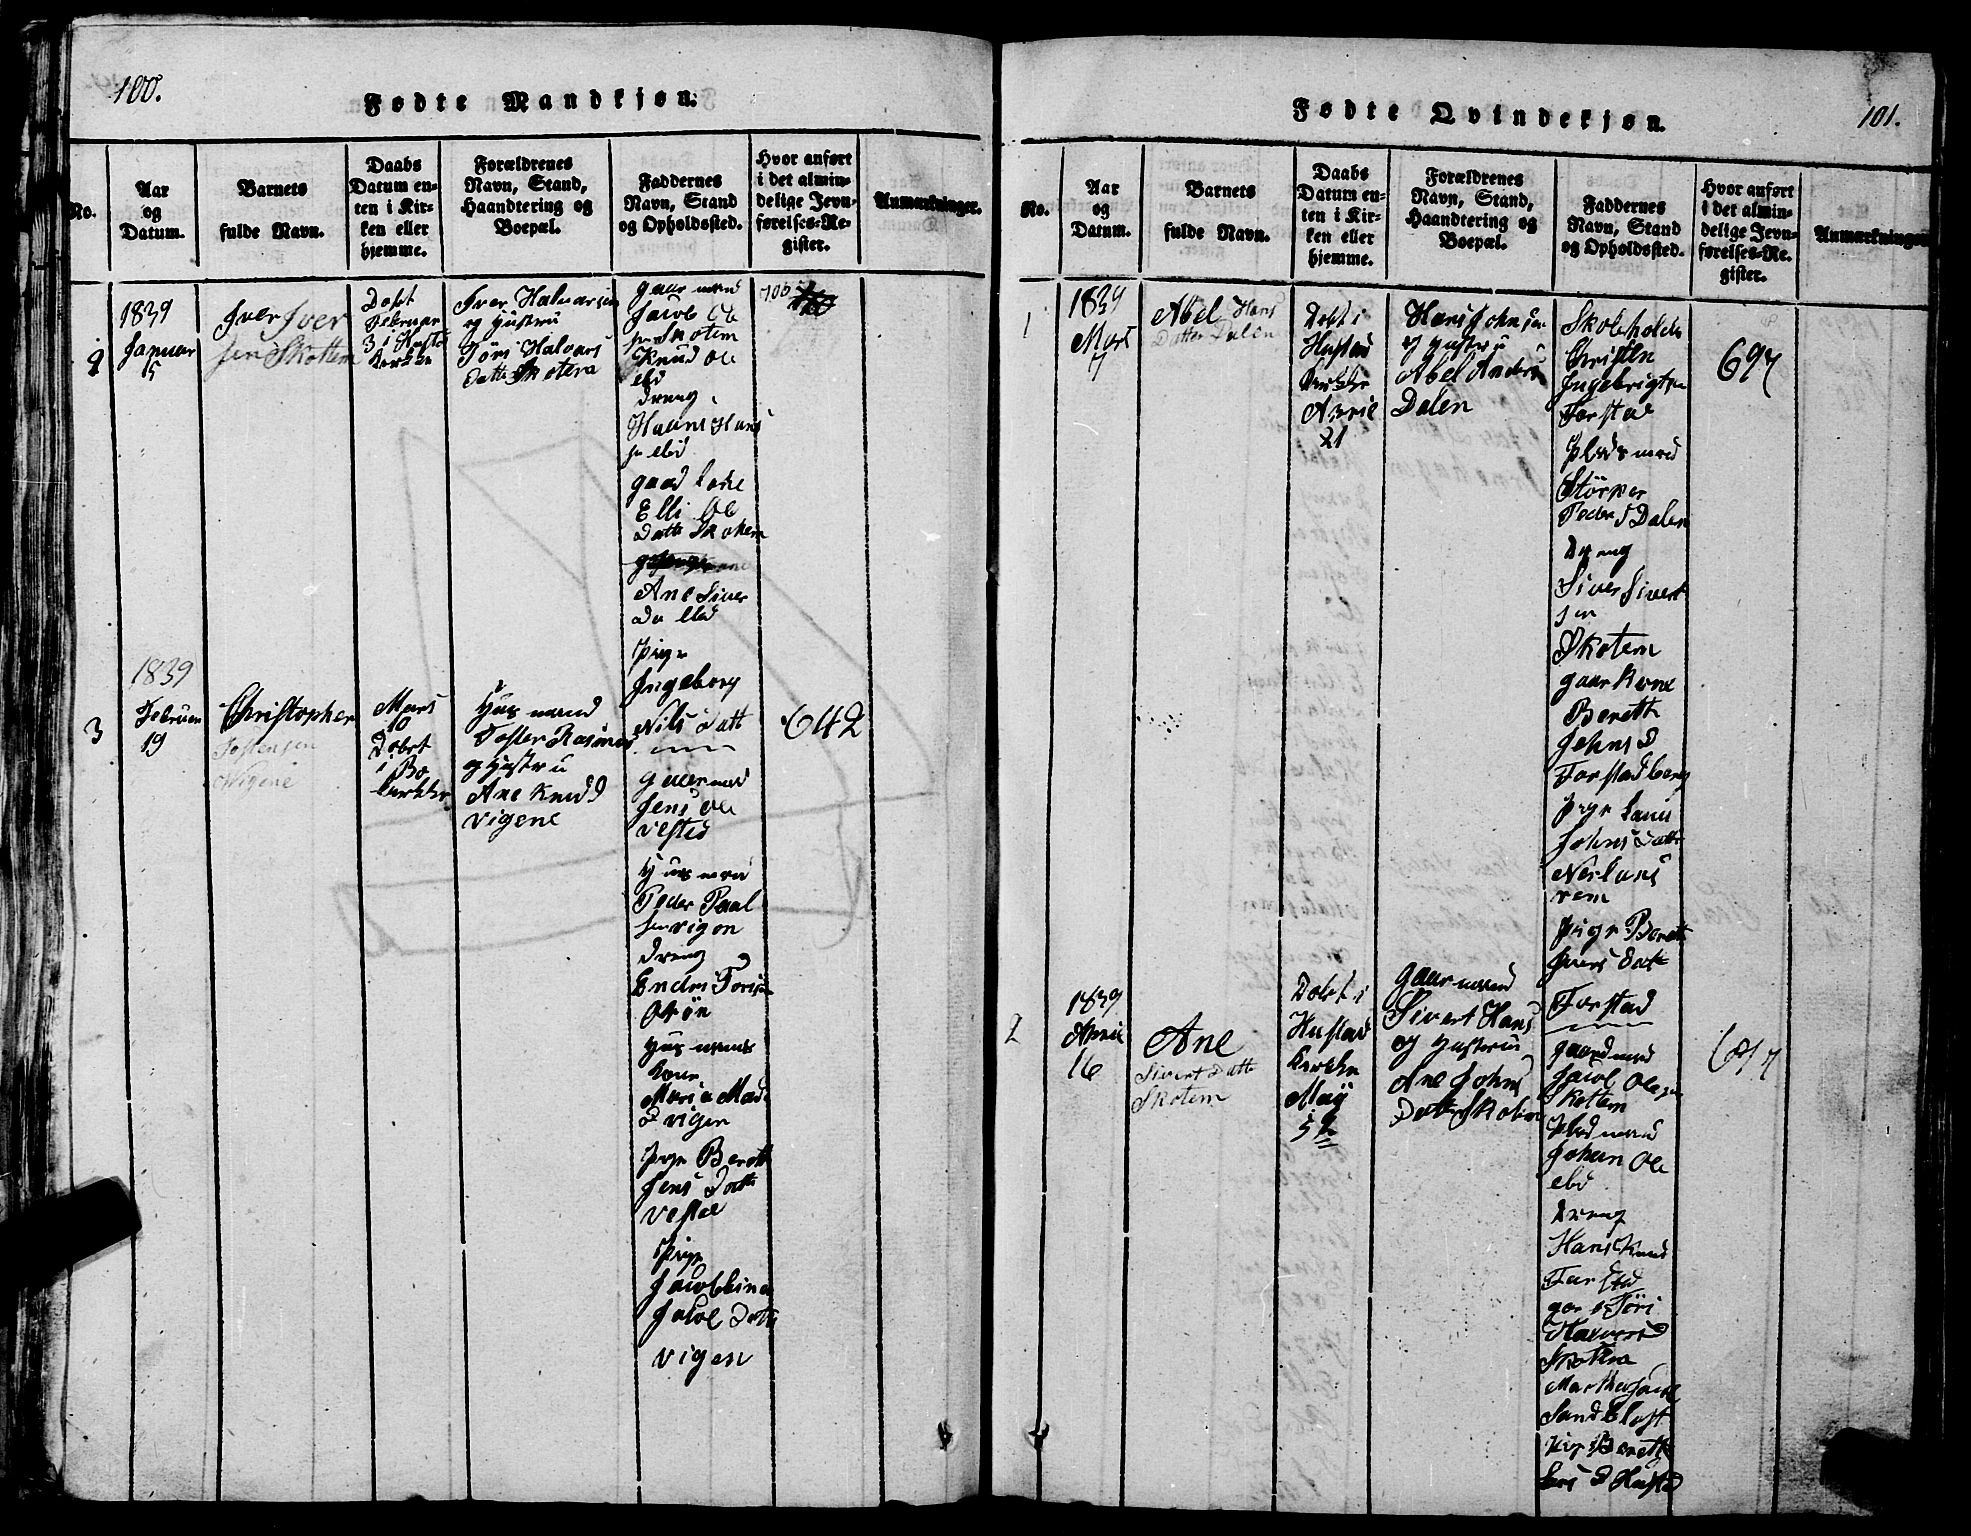 100.
Fødte Mandkjøn.
No.
Aar
og
Datum.
Barnets
fulde Navn.
Daabs
Datum en-
ten i Kir-
ken eller
hjemme.
Forældrenes
Navn, Stand,
Haandtering og
Boepæl.
Faddernes
Navn, Stand
og Opholdssted.
Hvor anført
i det almin-
delige Jevn-
førelses-Re-
gister.
Anmærkninger.
2
1839
Januar
15
Iver Iver
sen Skottem
Døbt
Februar
3 i Husta
kerken
Iver Halvarsen
og Hustru
Töri Halvars
Datte Skotem
gaarmand
Jacob Ole
sen Skotem
Knud Ole
ebd
dreng
Haans Hans
sn ebd
gaad kone
Elli Ole
Datte Skotem
Ane Siver
da ebd
pige
Ingeborg
Nils Datt
706
3
1839
Februar
19
Christopher
Tostensen
Vigene
Mars
10
Døbt
i Bø
kerkke
Husmand
Tosten Rasmus
og Hustru
Ane Knud D
vigene
gaarmad
Jens Ole
vestad
Husmand
Peder Paal
sen vigen
dreng
Endri Toris
Husmands
kone
Maria Mads
D vigen
pige Berett
Jens Datt
Vestad
pige
Jacobbina
Jacob Datte
vigen
642
101.
Fødte Qvindekjøn.
No.
Aar
og
Datum.
Barnets
fulde Navn.
Daabs
Datum en-
ten i Kir-
ken eller
hjemme.
Forældrenes
Navn, Stand,
Haandtering og
Boepæl.
Faddernes
Navn, Stand
og Opholdssted.
Hvor anført
i det almin-
delige Jevn-
førelses-Re-
gister.
Anmærkninger
1
1839
Mars
7
Abel Hans
Datter Dalen
Døbt i
Hustad
kerkke
Apriel
21
Hans Johnsen
og Hustru
Abel Anders
Dalen
Skoleholder
Christen
Ingebrigtsen
Farstad
pladsmad
Störker
Peder S Dalen
Dreng
Siver Sivert
sen
Skotem
gaarkone
Berette
Johns D
Farstadberg
pige
Johns Datte
Nerland
rem
pige Beret
Ivers Datte
Farstad
697
2
1839
April
16
Ane
Sivert Datte
Skotem
Døbt i
Hustad
kerkke
May
5
gaarmand
Sivert Hans
og Hustru
Ane Johns
Datte Skotem
gaardmad
Jacob Olesen
Skottem
pladmand
Johan Ole
ebd
Dreng
Hans Knud
Farstad
Töri
Halvers D
Skotem
Martha Jacob
Sandblost
pige Berett
Lars D Hustad